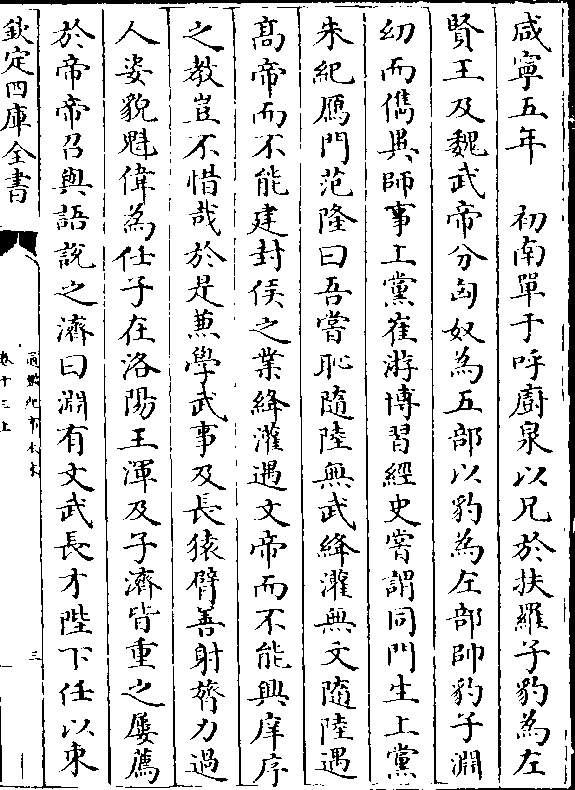 咸寧五年　初南單于呼廚泉以兄於扶羅子豹為左
賢王及魏武帝分匈奴為五部以豹為左部帥豹子淵
幼而儁異師事上黨崔游博習經史嘗謂同門生上黨
朱紀鴈門范隆曰吾嘗恥隨陸無武絳灌無文隨陸遇
髙帝而不能建封侯之業絳灌遇文帝而不能興庠序
之教豈不惜哉於是兼學武事及長猿臂善射膂力過
人姿貌魁偉為任子在洛陽王渾及子濟皆重之屢薦
於帝帝召與語說之濟曰淵有文武長才陛下任以東
欽定四庫全書
通鑑紀事本末
卷十三上
三